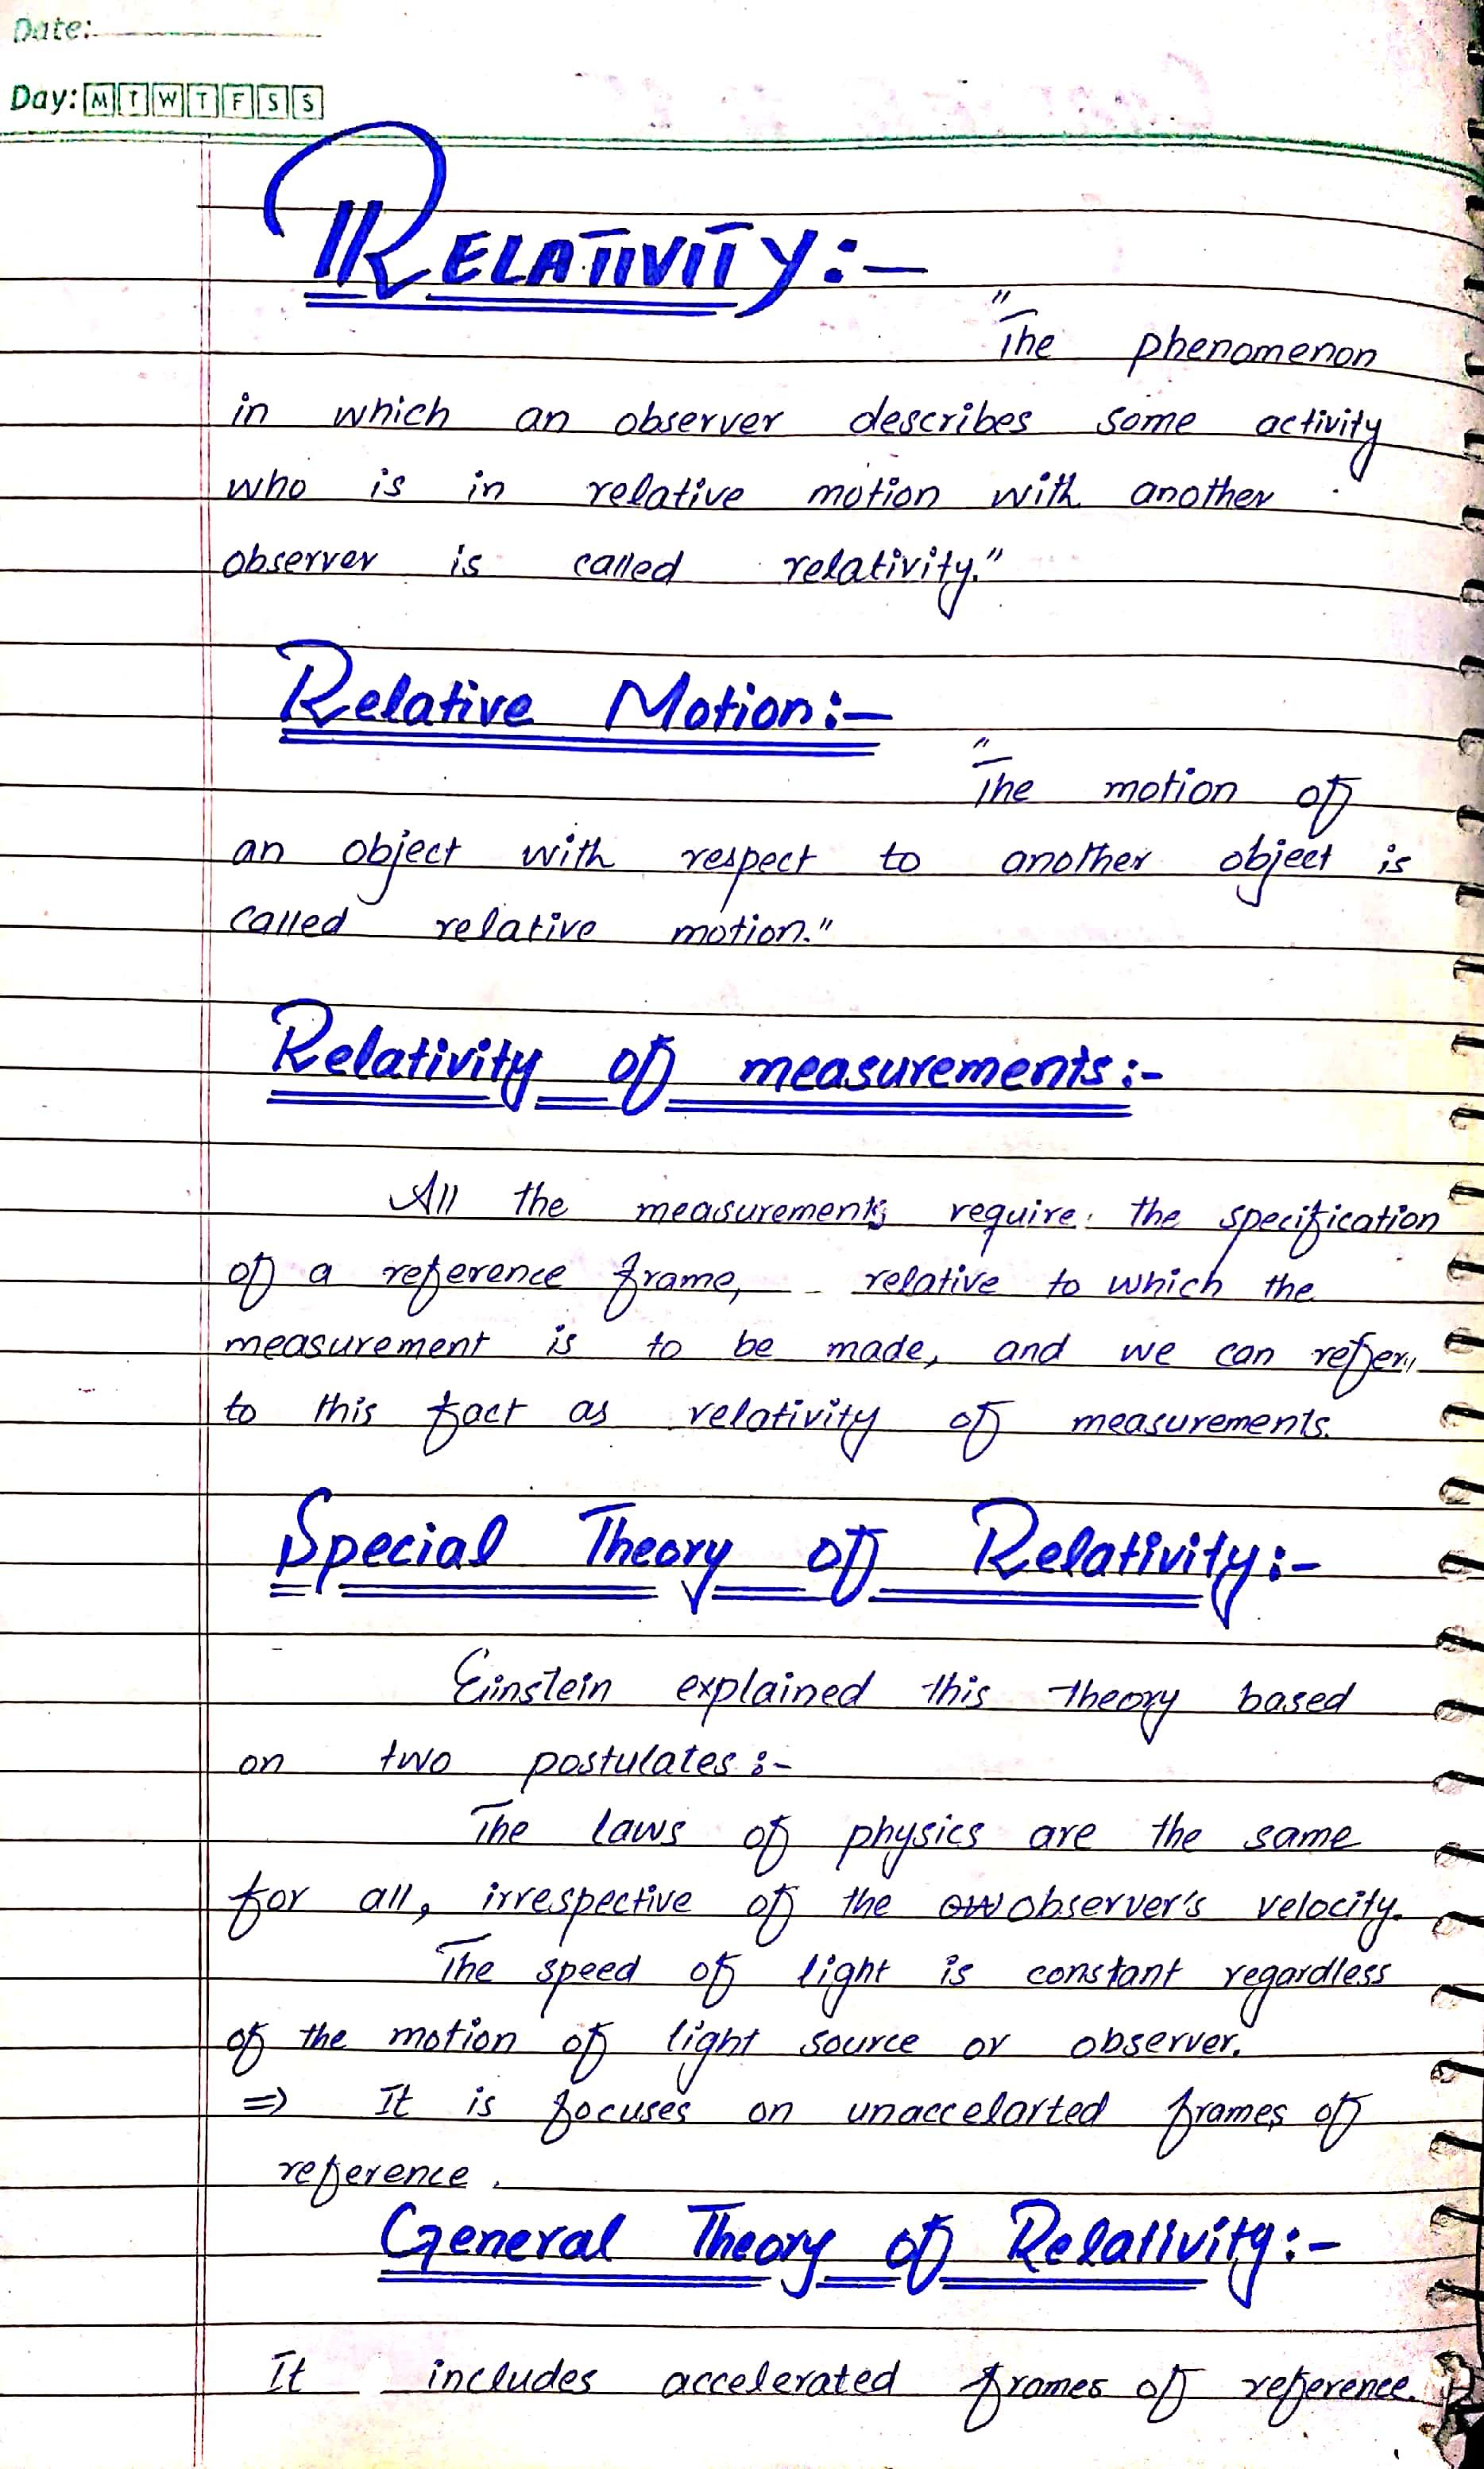 Date:
Day: M T W T F S S
RELATIVITY:-
"The phenomenon
in which an observer describes some activity
who is in relative motion with another
observer is called relativity."
Relative Motion:-
"The motion of
an object with respect to another object is
called relative motion."
Relativity of measurements:-
All the measurements require the specification
of a reference frame, relative to which the
measurement is to be made, and we can refer
to this fact as relativity of measurements.
Special Theory of Relativity:-
Einstein explained this theory based
on two postulates:-
The laws of physics are the same
for all, irrespective of the observer's velocity.
The speed of light is constant regardless
of the motion of light source or observer.
⇒ It is focuses on unaccelarted frames of
reference.
General Theory of Relativity:-
It includes accelerated frames of reference.